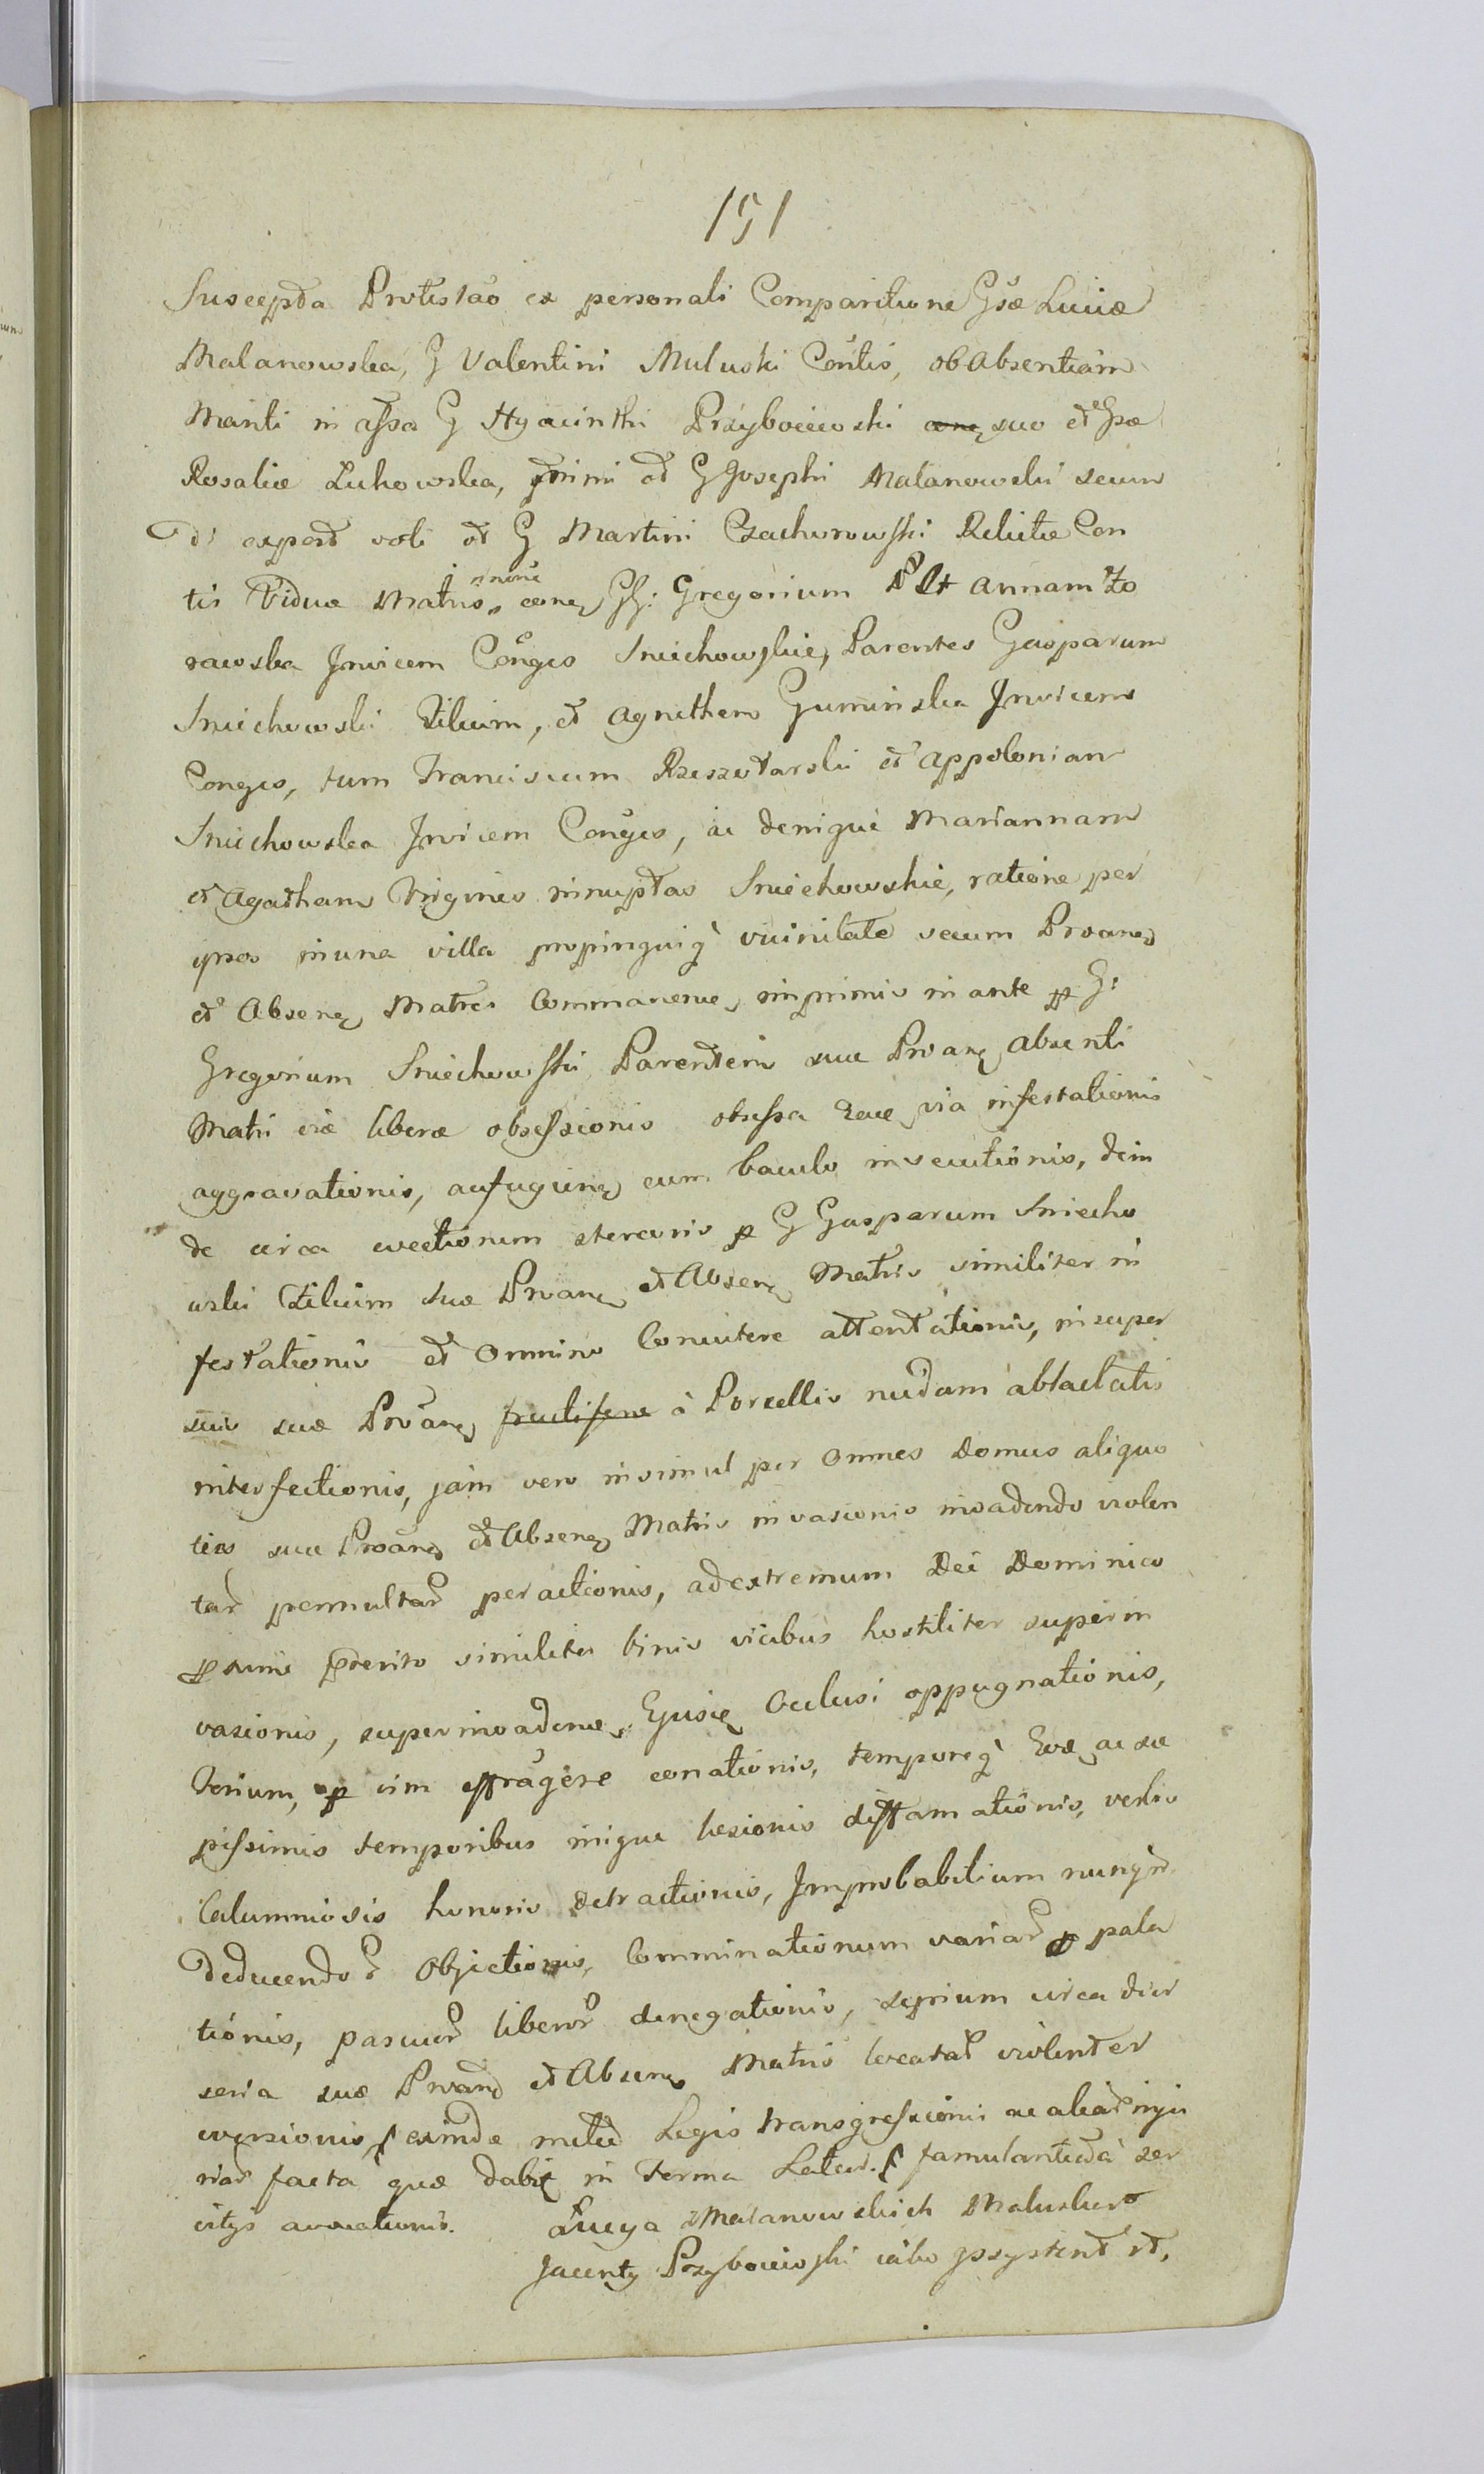 151
Suscepta Protestao ex personali Comparitione Gsæ Luciæ
Malanowska, G Valentini Muluski Contis, ob Absentiam
Mariti in assa G Hyacinthi Przybociewski suo et Gsæ
Rosaliæ Lukowska, primi et G Josephi Malanowski secun
di expost voti et G Martini Czachorowski Relictæ Con
tis Viduæ Matris, nomine GG: Gregorium et Annam Zo
rawska Invicem Conges Sniechowskie, Parentes Gasparum
Sniechowski Filium, et Agnethem Guminska Invicem
Conges, tum Franciscum Rzeszotarski et Appoloniam
Sniechowska Invicem Conges, ac denique Mariannam
et Agatham Virgines innuptas Sniechowskie, ratione per
ipsos in una villa propinquiq vicinitate secum Proane
et Absene Matre Commanene, inprimis in ante p G:
Gregorium Sniechowski Parentem suæ Proane absenti
Matri viæ liberæ obsessionis obsessa Eaue via infestationis
aggravationis, aufugiene cum baculo insecutionis, dein
de circa evectionem stercoris p G Gasparum Sniecho
wski Filium suæ Proane et Absene Matris similiter in
festationis et omnino Concutere attentationis, insuper
suis suæ Proane à Porcellis nudum ablactatis
interfectionis, jam vero insimul per omnes Domus aliquo
ties suæ Proane et Absene Matris invasionis invadendo violen
tar permultar peractionis, ad extremum Dei Dominico
pxime pterito similiter binis vicibus hostiliter superin
vasionis, superinvadene, Ejusq Occlusi oppugnationis,
Ostium, p vim effragere conationis, temporeq Eoæ ac sæ
pissimis temporibus inique læsionis diffamationis, verbis
Calumniosis honoris detractionis, Improbabilium nunq
deducendor Objectionis, Comminationum variar p pala
tionis, pascuor liberor denegationis, sepium circa diver
seria suæ Proane et Absene Matris locatar violenter
eversionis, exinde Legis transgressionis ac aliar inju
riar facta quæ dabit in Termo Latius. famulantiuda ser
vitys avocationis. Łucya z Malanowskich Maluska
Jacenty Przybociewski iako przystent et,